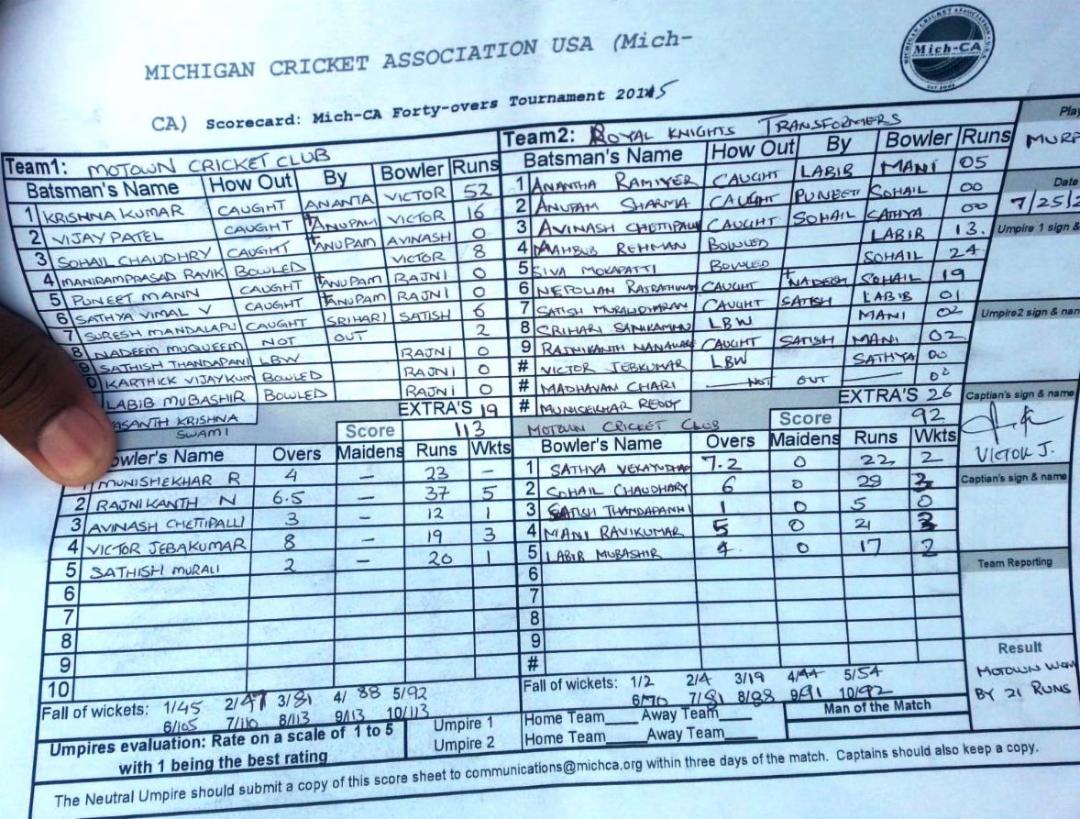 MICHIGAN CRICKET ASSOCIATION USA (Mich-
CA) Scorecard: Mich-CA Forty-overs Tournament 2015
MICHIGAN CRICKET ASSOCIATION U.S.A.
Mich-CA
Team1: MOTOWN CRICKET CLUB
Batsman's Name How Out By Bowler Runs
1 KRISHNA KUMAR CAUGHT ANANTA VICTOR 52
2 VIJAY PATEL CAUGHT +ANUPAM VICTOR 16
3 SOHAIL CHAUDHRY CAUGHT +ANUPAM AVINASH 0
4 MANIRAMPRASAD RAVIK BOWLED VICTOR 8
5 PUNEET MANN CAUGHT +ANUPAM RAJNI 0
6 SATHYA VIMAL V CAUGHT +ANUPAM RAJNI 0
7 SURESH MANDALAPU CAUGHT SRIHARI SATISH 6
8 NADEEM MUQUEEM NOT OUT 2
9 SATHISH THANDAPANI LBW RAJNI 0
0 KARTHICK VIJAYKUM BOWLED RAJNI 0
LABIB MUBASHIR BOWLED RAJNI 0
ASANTH KRISHNA SWAMI
EXTRA'S 19
Score 113
owler's Name Overs Maidens Runs Wkts
1 MUNISHEKHAR R 4 — 23 —
2 RAJNIKANTH N 6.5 — 37 5
3 AVINASH CHETTIPALLI 3 — 12 1
4 VICTOR JEBAKUMAR 8 — 19 3
5 SATHISH MURALI 2 — 20 1
6
7
8
9
10
Fall of wickets: 1/45 2/47 3/81 4/88 5/92
6/105 7/110 8/113 9/113 10/113
Team2: ROYAL KNIGHTS TRANSFORMERS
Batsman's Name How Out By Bowler Runs
1 ANANTHA RAMIYER CAUGHT LABIB MANI 05
2 ANUPAM SHARMA CAUGHT PUNEET SOHAIL 00
3 AVINASH CHETIPALLI CAUGHT SOHAIL SATHYA 00
4 MAHBUB REHMAN BOWLED LABIR 13.
5 SIVA MOKAPATTI BOWLED SOHAIL 24
6 NEPOLIAN CAUGHT +NADEEM SOHAIL 19
7 SATISH MURALIDHARAN CAUGHT SATISH LABIB 01
8 SRIHARI LBW MANI 02
9 RAJNIKANTH CAUGHT SATISH MANI 02
# VICTOR JEBKUMAR LBW SATHYA 00
# MADHAVAN CHARI NOT OUT 02
# MUNISEKHAR REDDY
EXTRA'S 26
MOTOWN CRICKET CLUB Score 92
Bowler's Name Overs Maidens Runs Wkts
1 SATHYA 7.2 0 22 2
2 SOHAIL CHAUDHARY 6 0 29 3
3 SATISH THANDAPANHI 1 0 5 0
4 MANI RAVIKUMAR 5 0 21 3
5 LABIR MUBASHIR 4. 0 17 2
6
7
8
9
#
Fall of wickets: 1/2 2/4 3/19 4/44 5/54
6/70 7/81 8/88 9/91 10/92
Pla
MURP
Date
7/25/2
Umpire 1 sign &
Umpire2 sign & nam
Captian's sign & name
VICTOR J.
Captian's sign & name
Team Reporting
Result
MOTOWN WON
BY 21 RUNS
Umpires evaluation: Rate on a scale of 1 to 5
with 1 being the best rating
Umpire 1 Home Team___ Away Team____
Umpire 2 Home Team_____Away Team____
Man of the Match
The Neutral Umpire should submit a copy of this score sheet to communications@michca.org within three days of the match. Captains should also keep a copy.